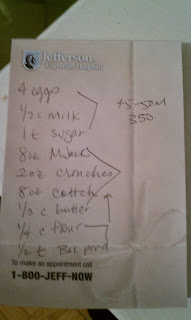 Jefferson
University Hospitals
4 eggs
1/2 c milk
1 t sugar
8oz M. Jack
2oz crmchees
8oz cottch
1/3 c butter
1/4 c flour
1/2 t Bak pwd
45-50M
350
To make an appointment call
1-800-JEFF-NOW